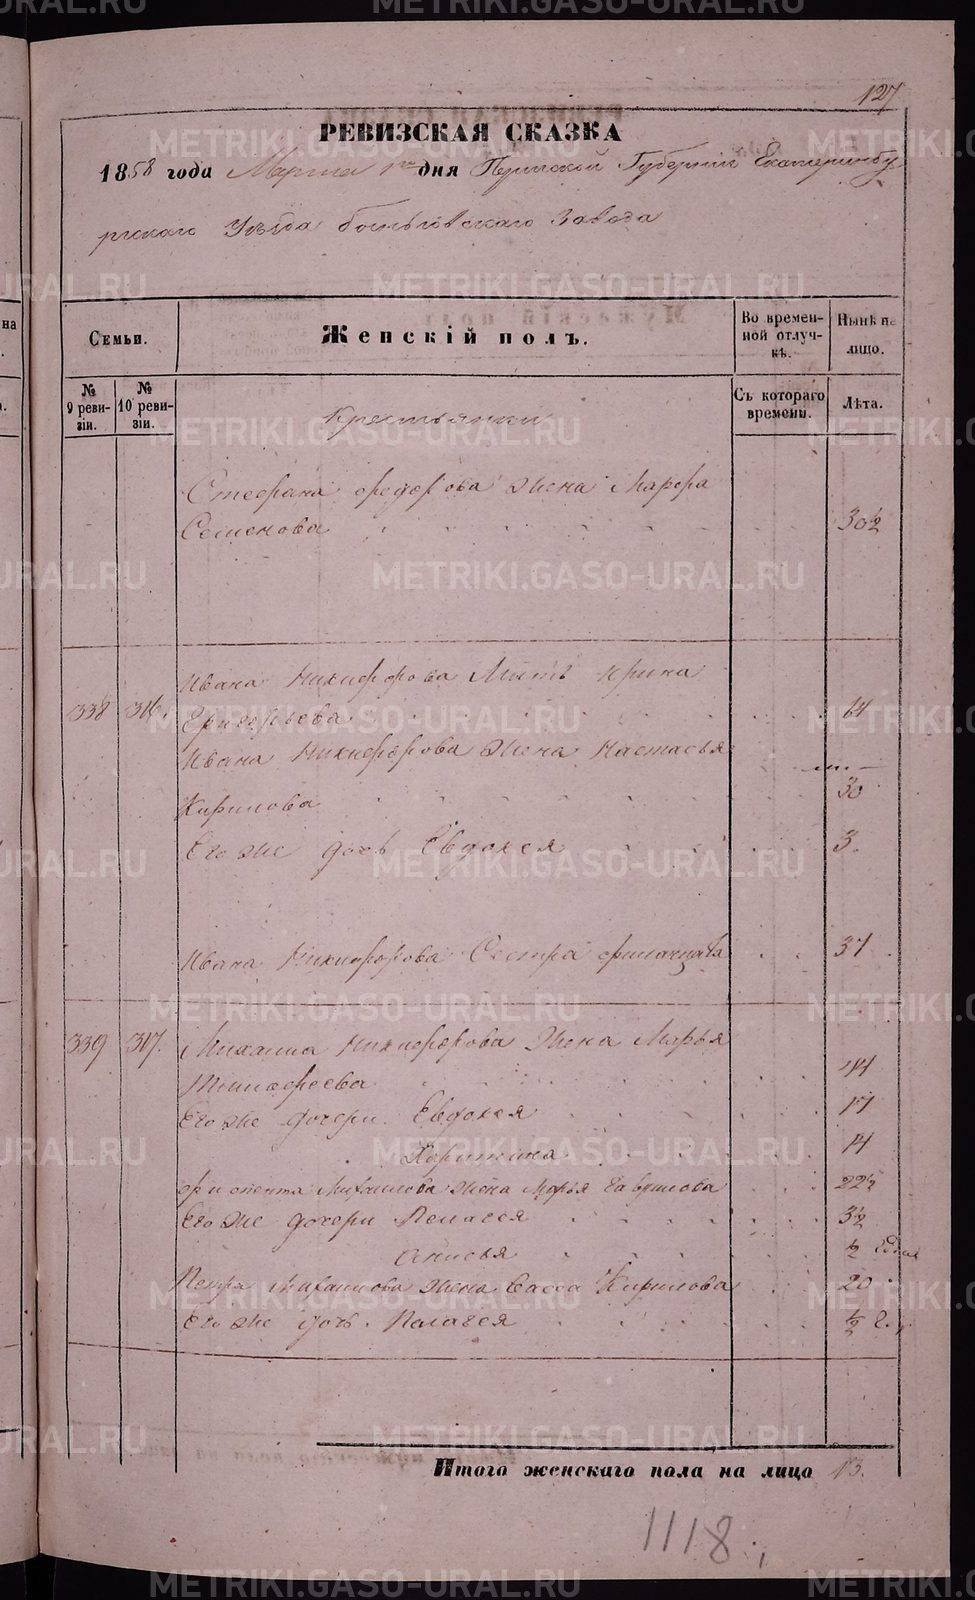 127
РЕВИЗСКАЯ СКАЗКА
1858 года Марта 1го дня Пермской Губернiи Екатеринбу
ргскаго Уѣзда Заводa
Семьи.
Женскiй полъ.
Во времен-
ной отлуч-
кѣ.
Нынѣ на
лицо.
№
9 реви-
зiи.
№
10 реви-
зiи.
Крестьянки
Съ котораго
времени.
Лѣта.
Стефана Федорова жена Марфа
Семенова 30½
Ивана Никифорова Мать Ирина
338 316. Григорьева
Ивана Никифорова жена Настасья
Кирилова 30
Его же дочь Евдокея 3.
Ивана Никифорова Сестра 37
339 317. Михаила Никифорова жена Марья
Тимофеева 44
Его же дочери Евдокея 17
Харитина 14
Михаилова жена Марья Гаврилова 22½
Его же дочери Пелагея 3½
Анисья ½ года
Петра Михаилова жена Васса Кирилова 20
Его же дочь Палагея ½ г.
Итого женскаго пола на лицо 13.
1118
METRIKI.GASO-URAL.RU